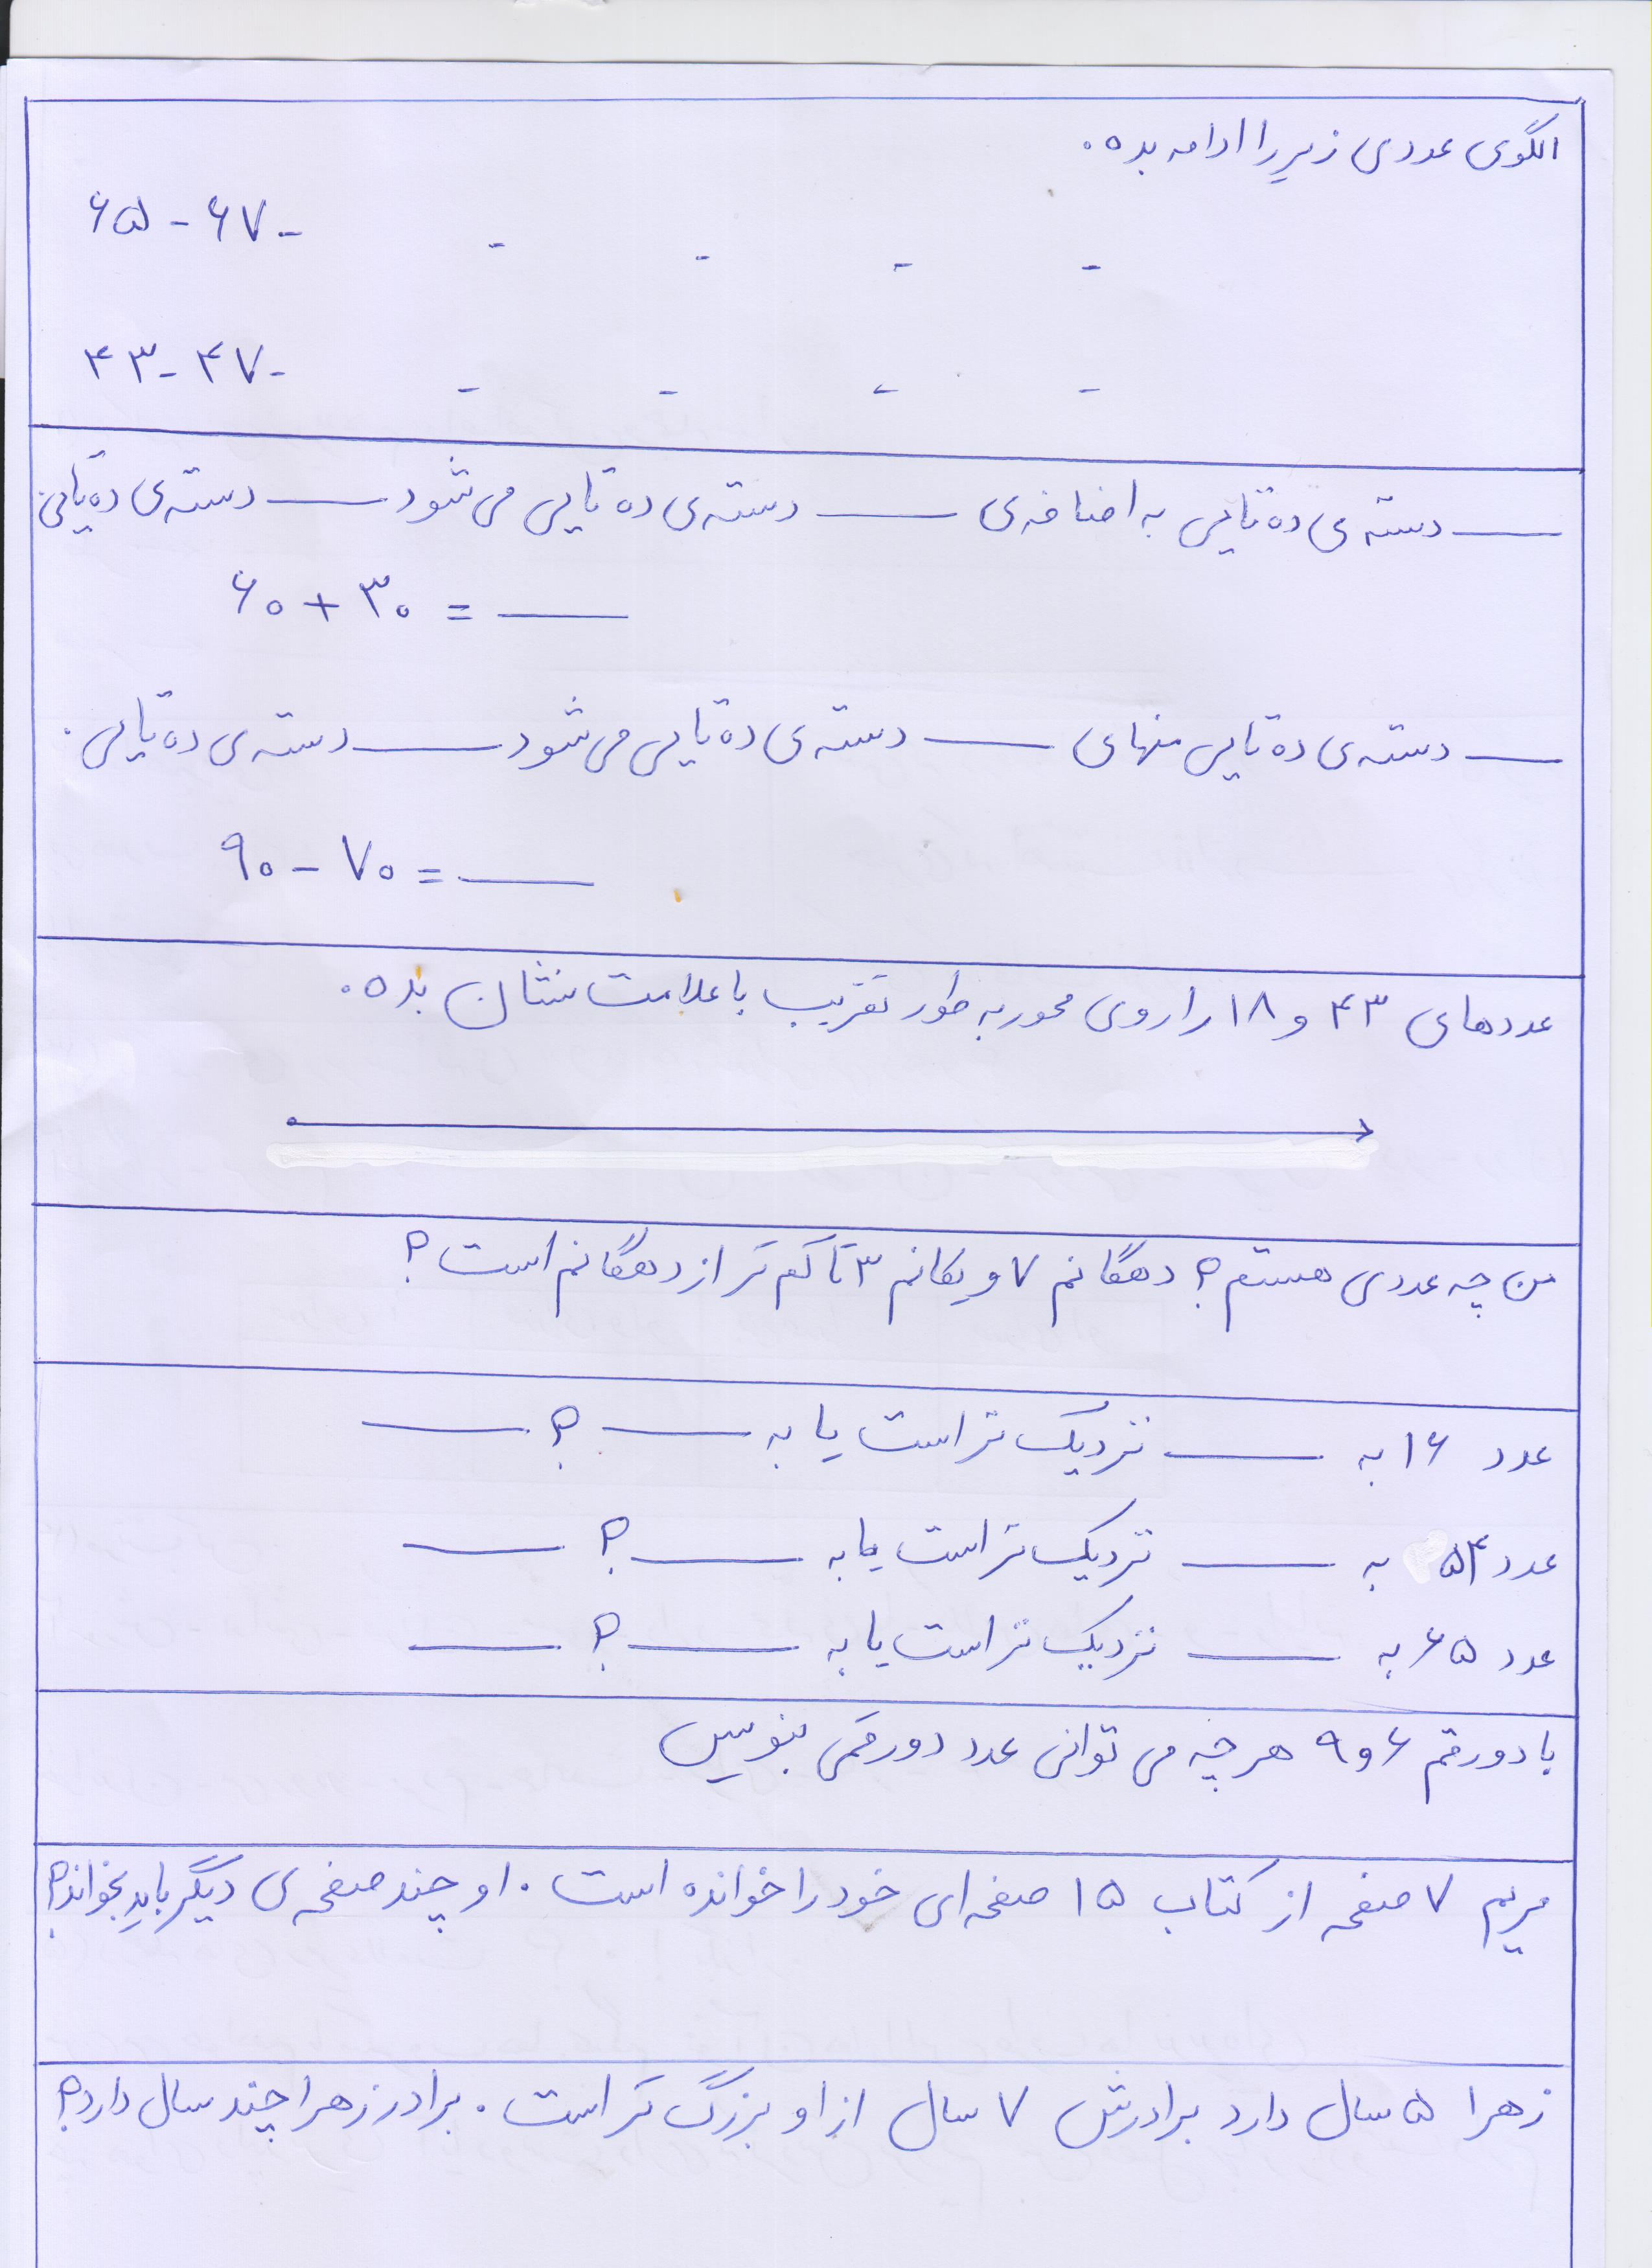 الگوی عددی زیر را ادامه بده.
۶۵ - ۶۷ - - - - -
۴۳ - ۴۷ - - - - -
___ دسته ی ده تایی به اضافه ی ___ دسته ی ده تایی می شود ___ دسته ی ده تایی.
۶۰ + ۳۰ = ___
___ دسته ی ده تایی منهای ___ دسته ی ده تایی می شود ___ دسته ی ده تایی.
۹۰ - ۷۰ = ___
عددهای ۴۳ و ۱۸ را روی محور به طور تقریب با علامت نشان بده.
من چه عددی هستم؟ دهگانم ۷ و یکانم ۳ تا کم تر از دهگانم است؟
عدد ۱۶ به ___ نزدیک تر است یا به ___ ؟ ___
عدد ۵۴ به ___ نزدیک تر است یا به ___ ؟ ___
عدد ۶۵ به ___ نزدیک تر است یا به ___ ؟ ___
با دو رقم ۶ و ۹ هر چه می توانی عدد دو رقمی بنویس
مریم ۷ صفحه از کتاب ۱۵ صفحه ای خود را خوانده است. او چند صفحه ی دیگر باید بخواند؟
زهرا ۵ سال دارد برادرش ۷ سال از او بزرگ تر است. برادر زهرا چند سال دارد؟